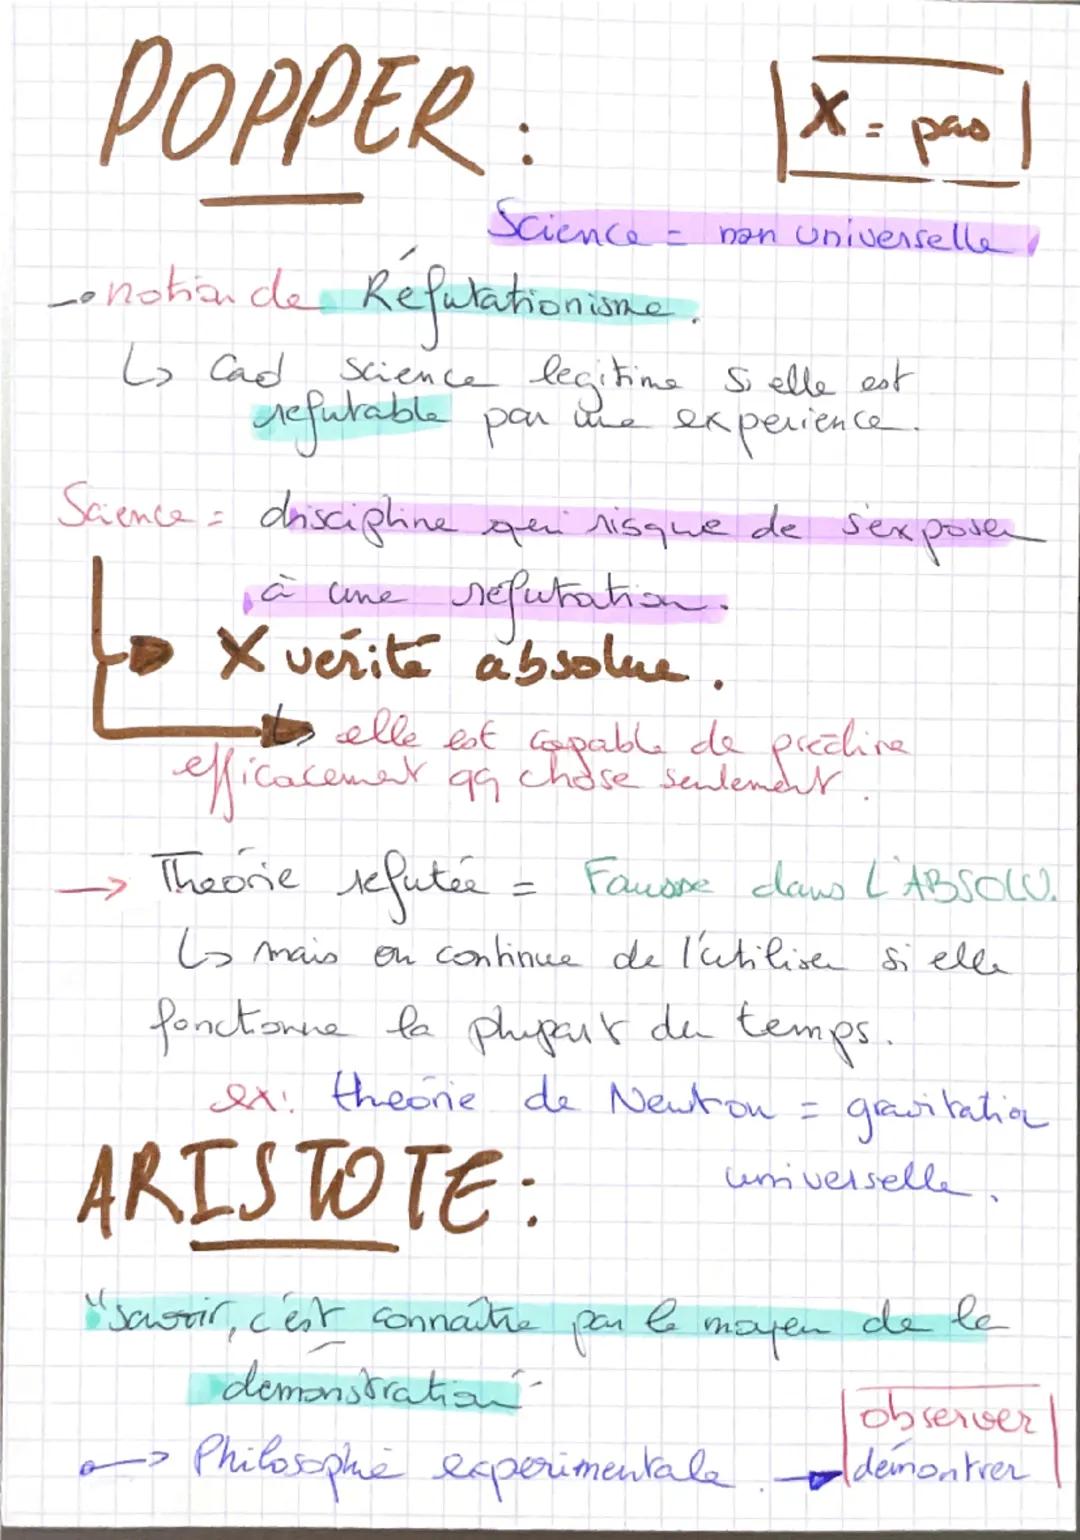 POPPER :
X = pas
Science = non universelle
notion de Réfutationisme.
↳ Cad science legitime si elle est
refutable par une experience.
Science = discipline qui risque de s'exposer
à une réfutation.
X vérité absolue.
↳ elle est capable de prédire
efficacement qq chose seulement.
→ Théorie refutée = Fausse dans L'ABSOLU.
↳ mais on continue de l'utiliser si elle
fonctionne la plupart du temps.
ex: théorie de Newton = gravitation
universelle.
ARISTOTE :
"savoir, c'est connaître par le moyen de la
démonstration"
→ Philosophie experimentale. → observer
démontrer